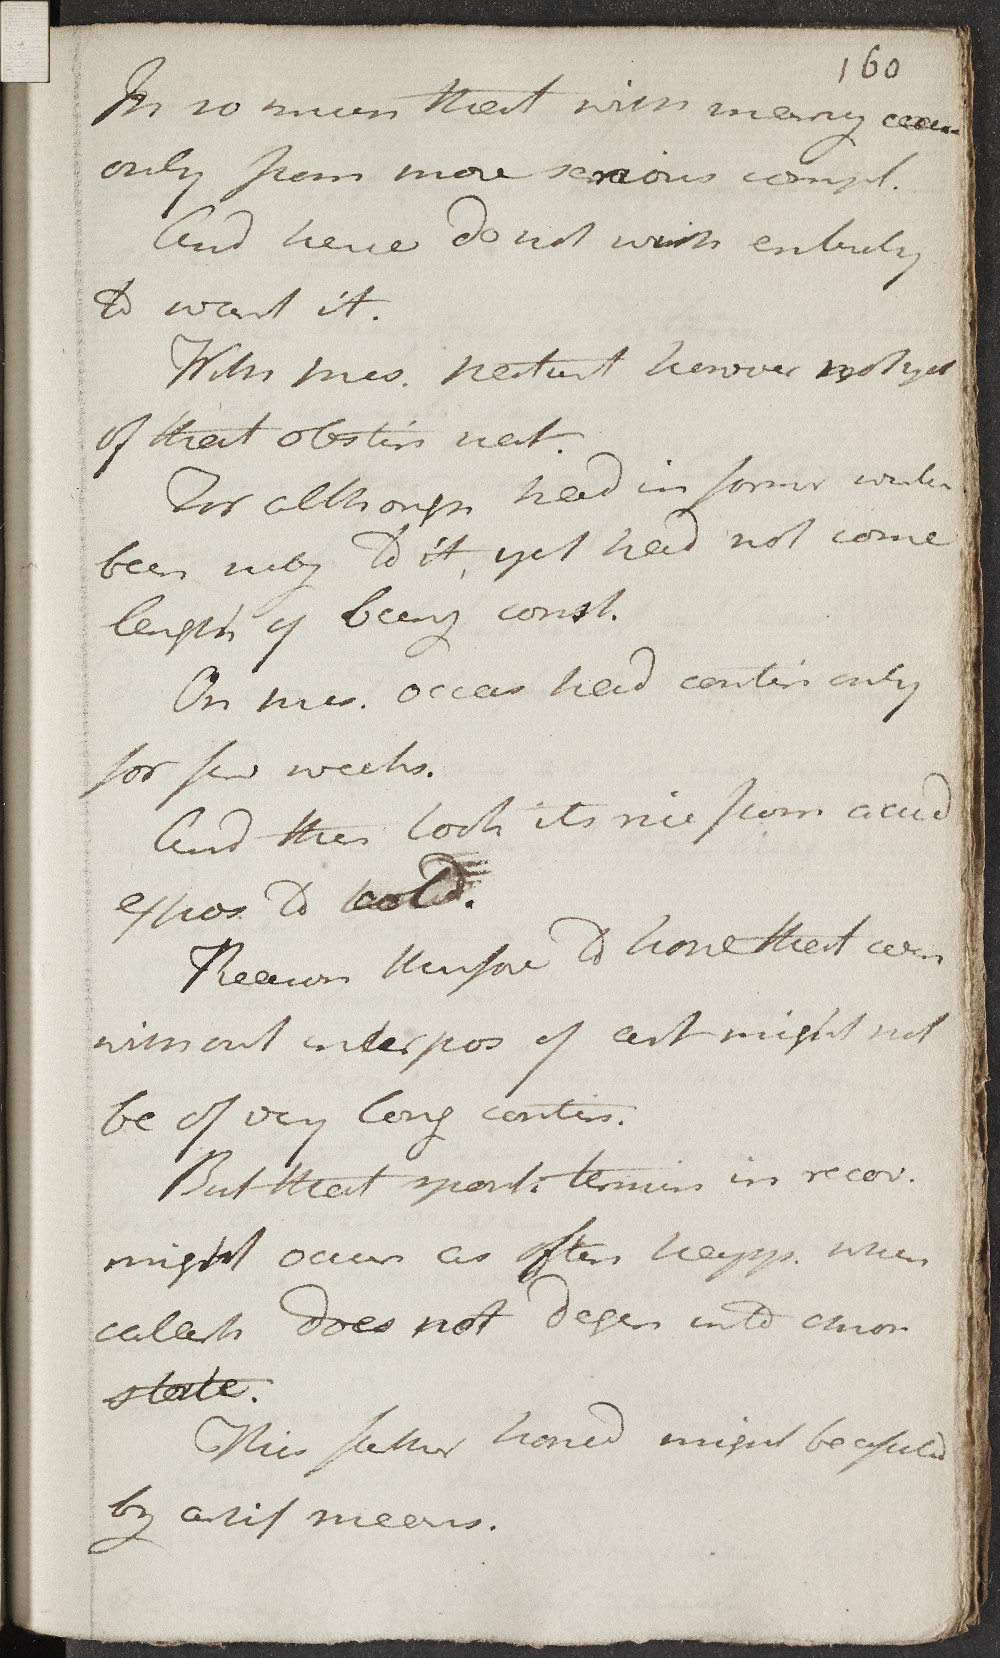 160
In so much that with many
only from more serious compl.
And hence do not wish entirely
to want it.
With this patient however not yet
of that obstin nat.
For although had in former winter
been subj to it, yet had not come
length of being const.
On this occas had contin only
for few weeks.
And then took its rise from accid
expos to cold.
Reason therefore to hope that even
without interpos of art might not
be of very long contin.
But that spont. termin in recov.
might occur as often happ. when
catarh does not degen into chron
state.
This further hoped might be
by artif means.